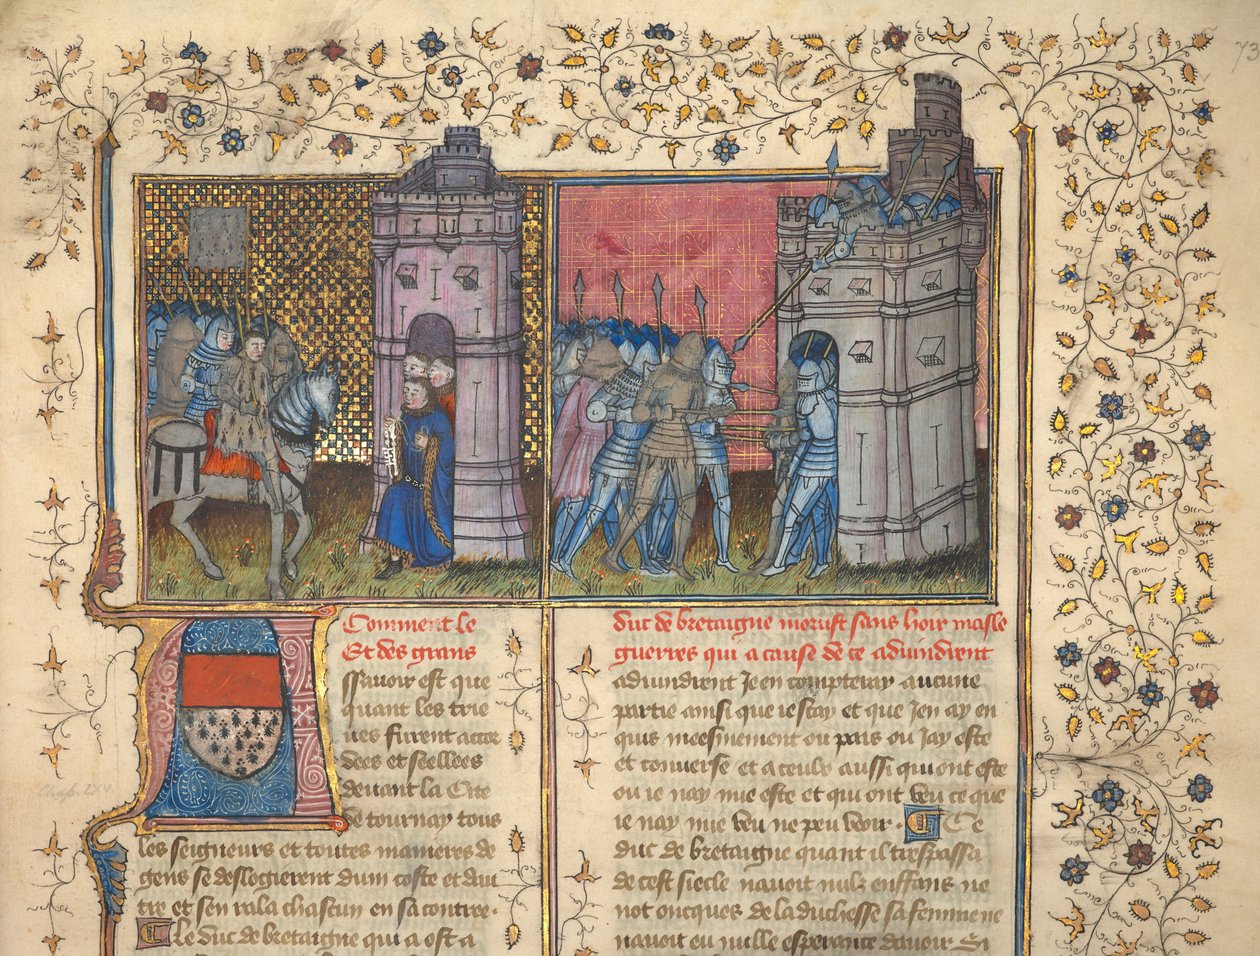 Comment le
Et des grans
ssavoir est que
quant les trie
ues furent accor
dees et seellees
devant la Cite
de tournay tous
les seigneurs et toutes manieres de
gens se deslogierent dum coste et dau
tre et sen rala chascun en sa contree.
Le duc de bretaigne qui a ost a
duc de bretaigne morust sans hoir masle
guerres qui a cause de ce advindrent
advindrent Je en compteray aucune
partie ainsi que ie scay et que Jen ay en
quis meesmement ou pais ou Jay este
et converse et a ceulx aussi qui ont este
ou ie nay mie este et qui ont veu ce que
ie nay mie veu ne peu veoir. Ce
duc de bretaigne quant il trespassa
de cest siecle navoit nulz enffans ne
not oncques de la duchesse sa femme ne
navoit eu nulle esperance davoir. Si